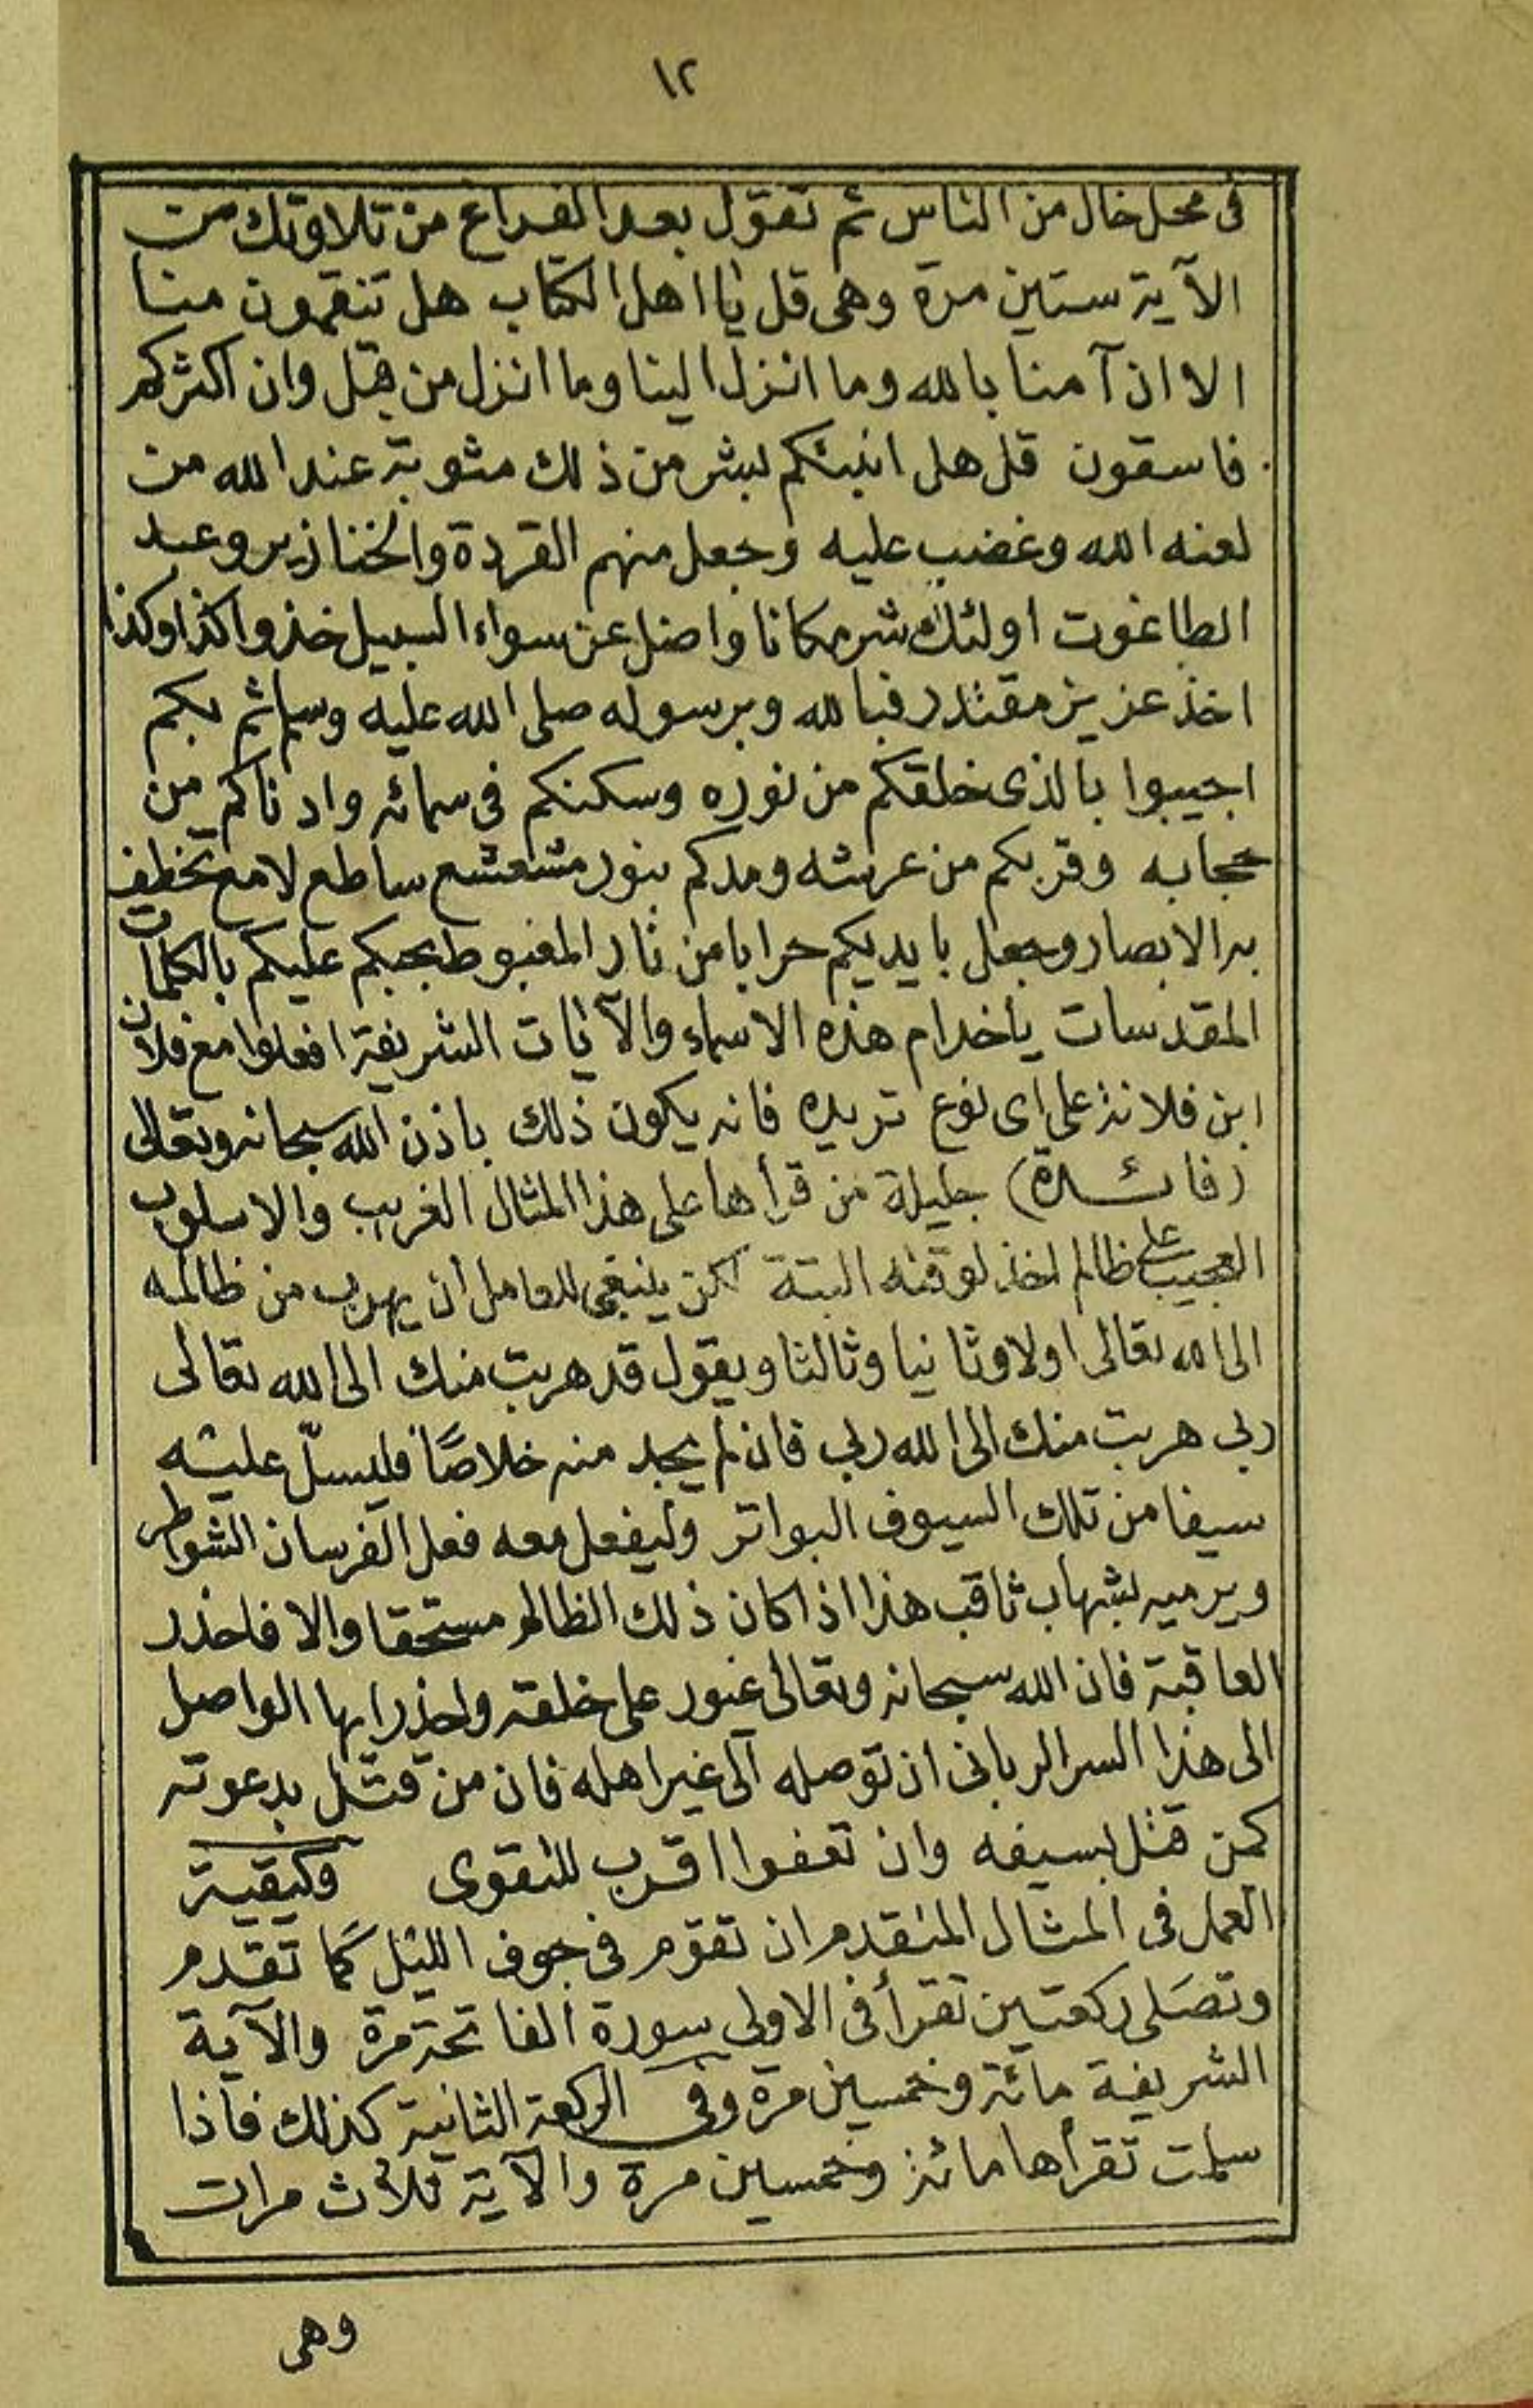 ١٢
فى محل خال من الناس ثم تقول بعد الفراغ من تلاوتك من
الآية ستين مرة وهى قل يا اهل الكتاب هل تنقمون منا
الا ان آمنا بالله وما انزل الينا وما انزل من قبل وان اكثركم
فاسقون قل هل انبئكم بشر من ذلك مثوبة عند الله من
لعنه الله وغضب عليه وجعل منهم القردة والخنازير وعبد
الطاغوت اولئك شر مكانا واضل عن سواء السبيل خذوا كذا وكذا
اخذ عزيز مقتدر فبالله وبرسوله صلى الله عليه وسلم ثم بكم
اجيبوا بالذى خلقكم من نوره وسكنكم فى سمائه وادناكم من
حجابه وقربكم من عرشه ومدكم بنور مشعشع ساطع لامع تخطف
به الابصار وجعل بايديكم حرابا من نار المغبوط بحبكم عليكم بالكلمات
المقدسات ياخدام هذه الاسماء والآيات الشريفة افعلوا مع فلان
ابن فلانة على اى نوع تريده فانه يكون ذلك باذن الله سبحانه وتعالى
(فائدة) جليلة من قرأها على هذا المثال الغريب والاسلوب
العجيب على ظالم اخذ لوقته البتة لكن ينبغى للعامل أن يهرب من ظالمه
الى الله تعالى اولا وثانيا وثالثا ويقول قد هربت منك الى الله تعالى
ربى هربت منك الى الله ربى فان لم يجد منه خلاصًا فليسلّ عليه
سيفا من تلك السيوف البواتر وليفعل معه فعل الفرسان الشواطر
ويرميه بشهاب ثاقب هذا اذا كان ذلك الظالم مستحقا والا فاحذر
العاقبة فان الله سبحانه وتعالى غيور على خلقه واحذر ايها الواصل
الى هذا السر الربانى ان توصله الى غير اهله فان من قتل بدعوته
كمن قتل بسيفه وان تعفوا اقرب للتقوى وكيفية
العمل فى المثال المتقدم ان تقوم فى جوف الليل كما تقدم
وتصلى ركعتين تقرأ فى الاولى سورة الفاتحة مرة والآية
الشريفة مائة وخمسين مرة وفى الركعة الثانية كذلك فاذا
سلمت تقرأها مائة وخمسين مرة والآية ثلاث مرات
وهى